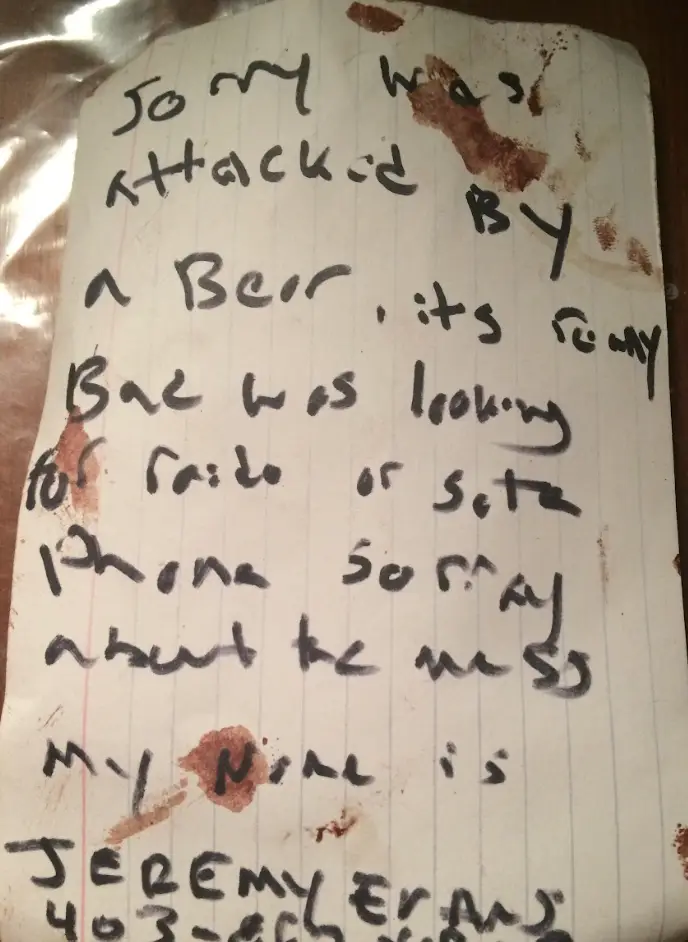 Sorry was
attacked By
a Bear, its realy
Bad was looking
for raido or sate
Phone sorry
about the mess
My Name is
JEREMY EVANS
403-